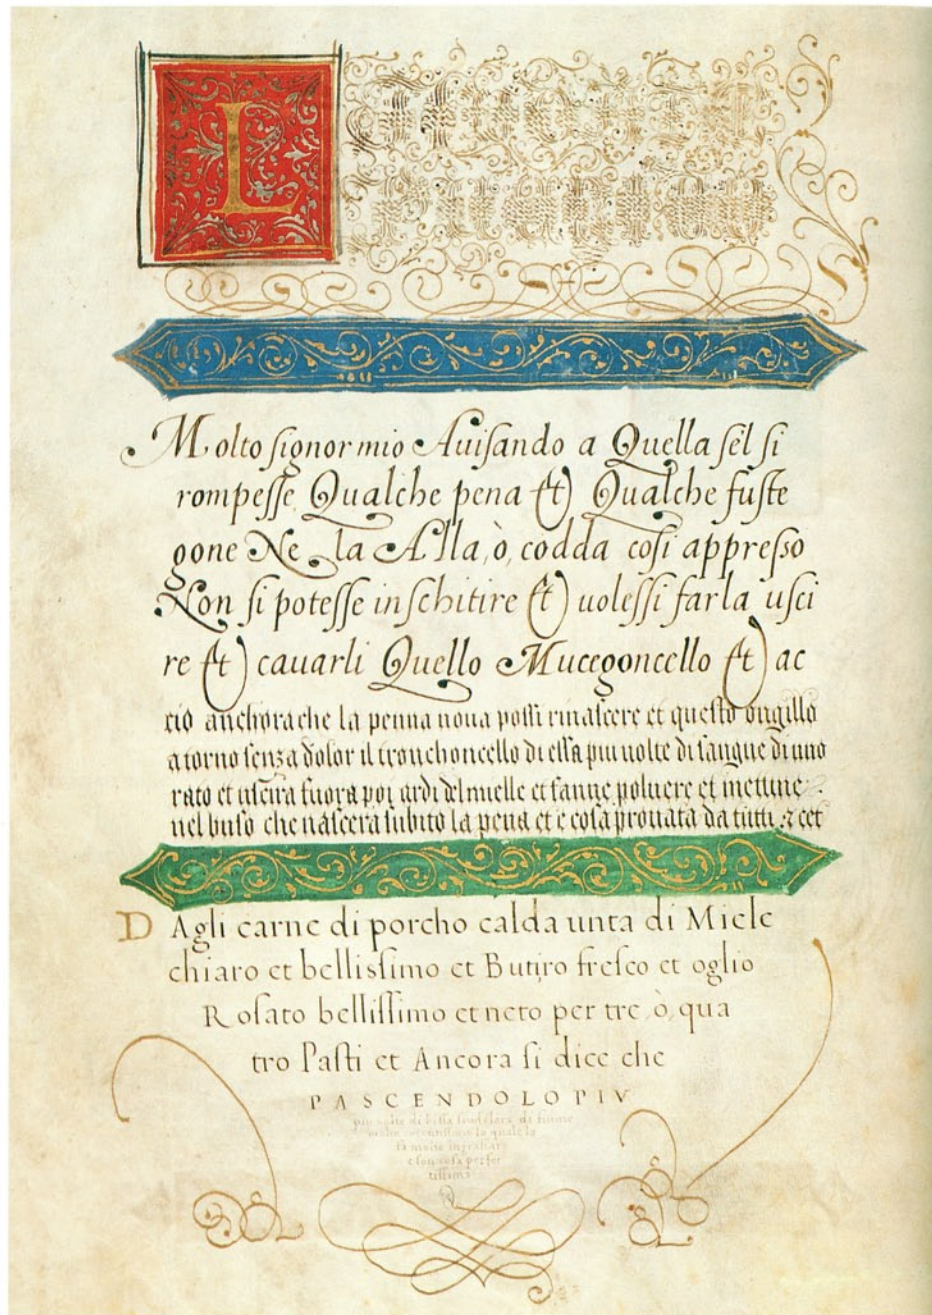 L
Molto ſignor mio Auiſando a Quella ſel ſi
rompeſſe Qualche pena et Qualche fuſte
gone Ne la Alla, ò, codda coſi appreſſo
Non ſi poteſſe inſchitire et uoleſſi farla uſci
re et cauarli Quello Mucegoncello et ac
ciò anchora che la penna noua poſſi rinaſcere et queſto ongillo
a torno ſenza dolor il tronchoncello di eſſa piu uolte di ſangue di uno
rato et uſcira fuora poi ardi del muelle et fanne poluere et mettine
nel buſo che naſcera ſubito la pena et e coſa prouata da tutti & cet
D Agli carne di porcho calda unta di Miele
chiaro et belliſſimo et Butiro freſco et oglio
Roſato belliſſimo et neto per tre, ò, qua
tro Paſti et Ancora ſi dice che
PASCENDOLO PIV
piu uolte di biſſa di fiume
la quale lo
fa molto ingraſſare
e ſon coſa perfet
tiſſima